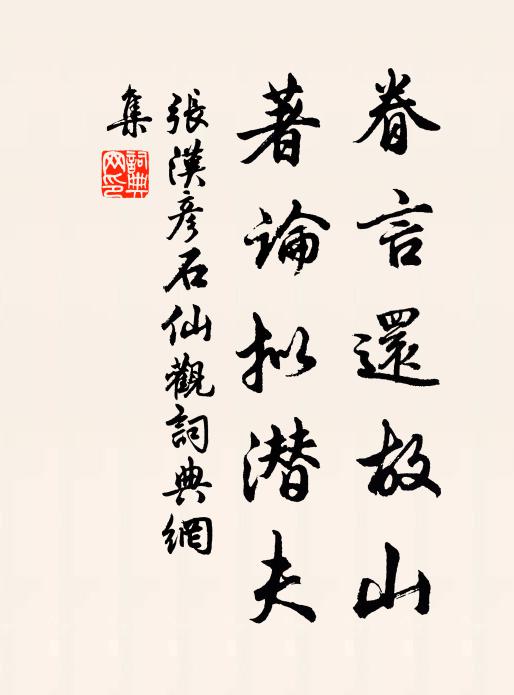 眷言還故山
著論拟潜夫
張漢彥石仙觀詞典網
集
詞典
网印